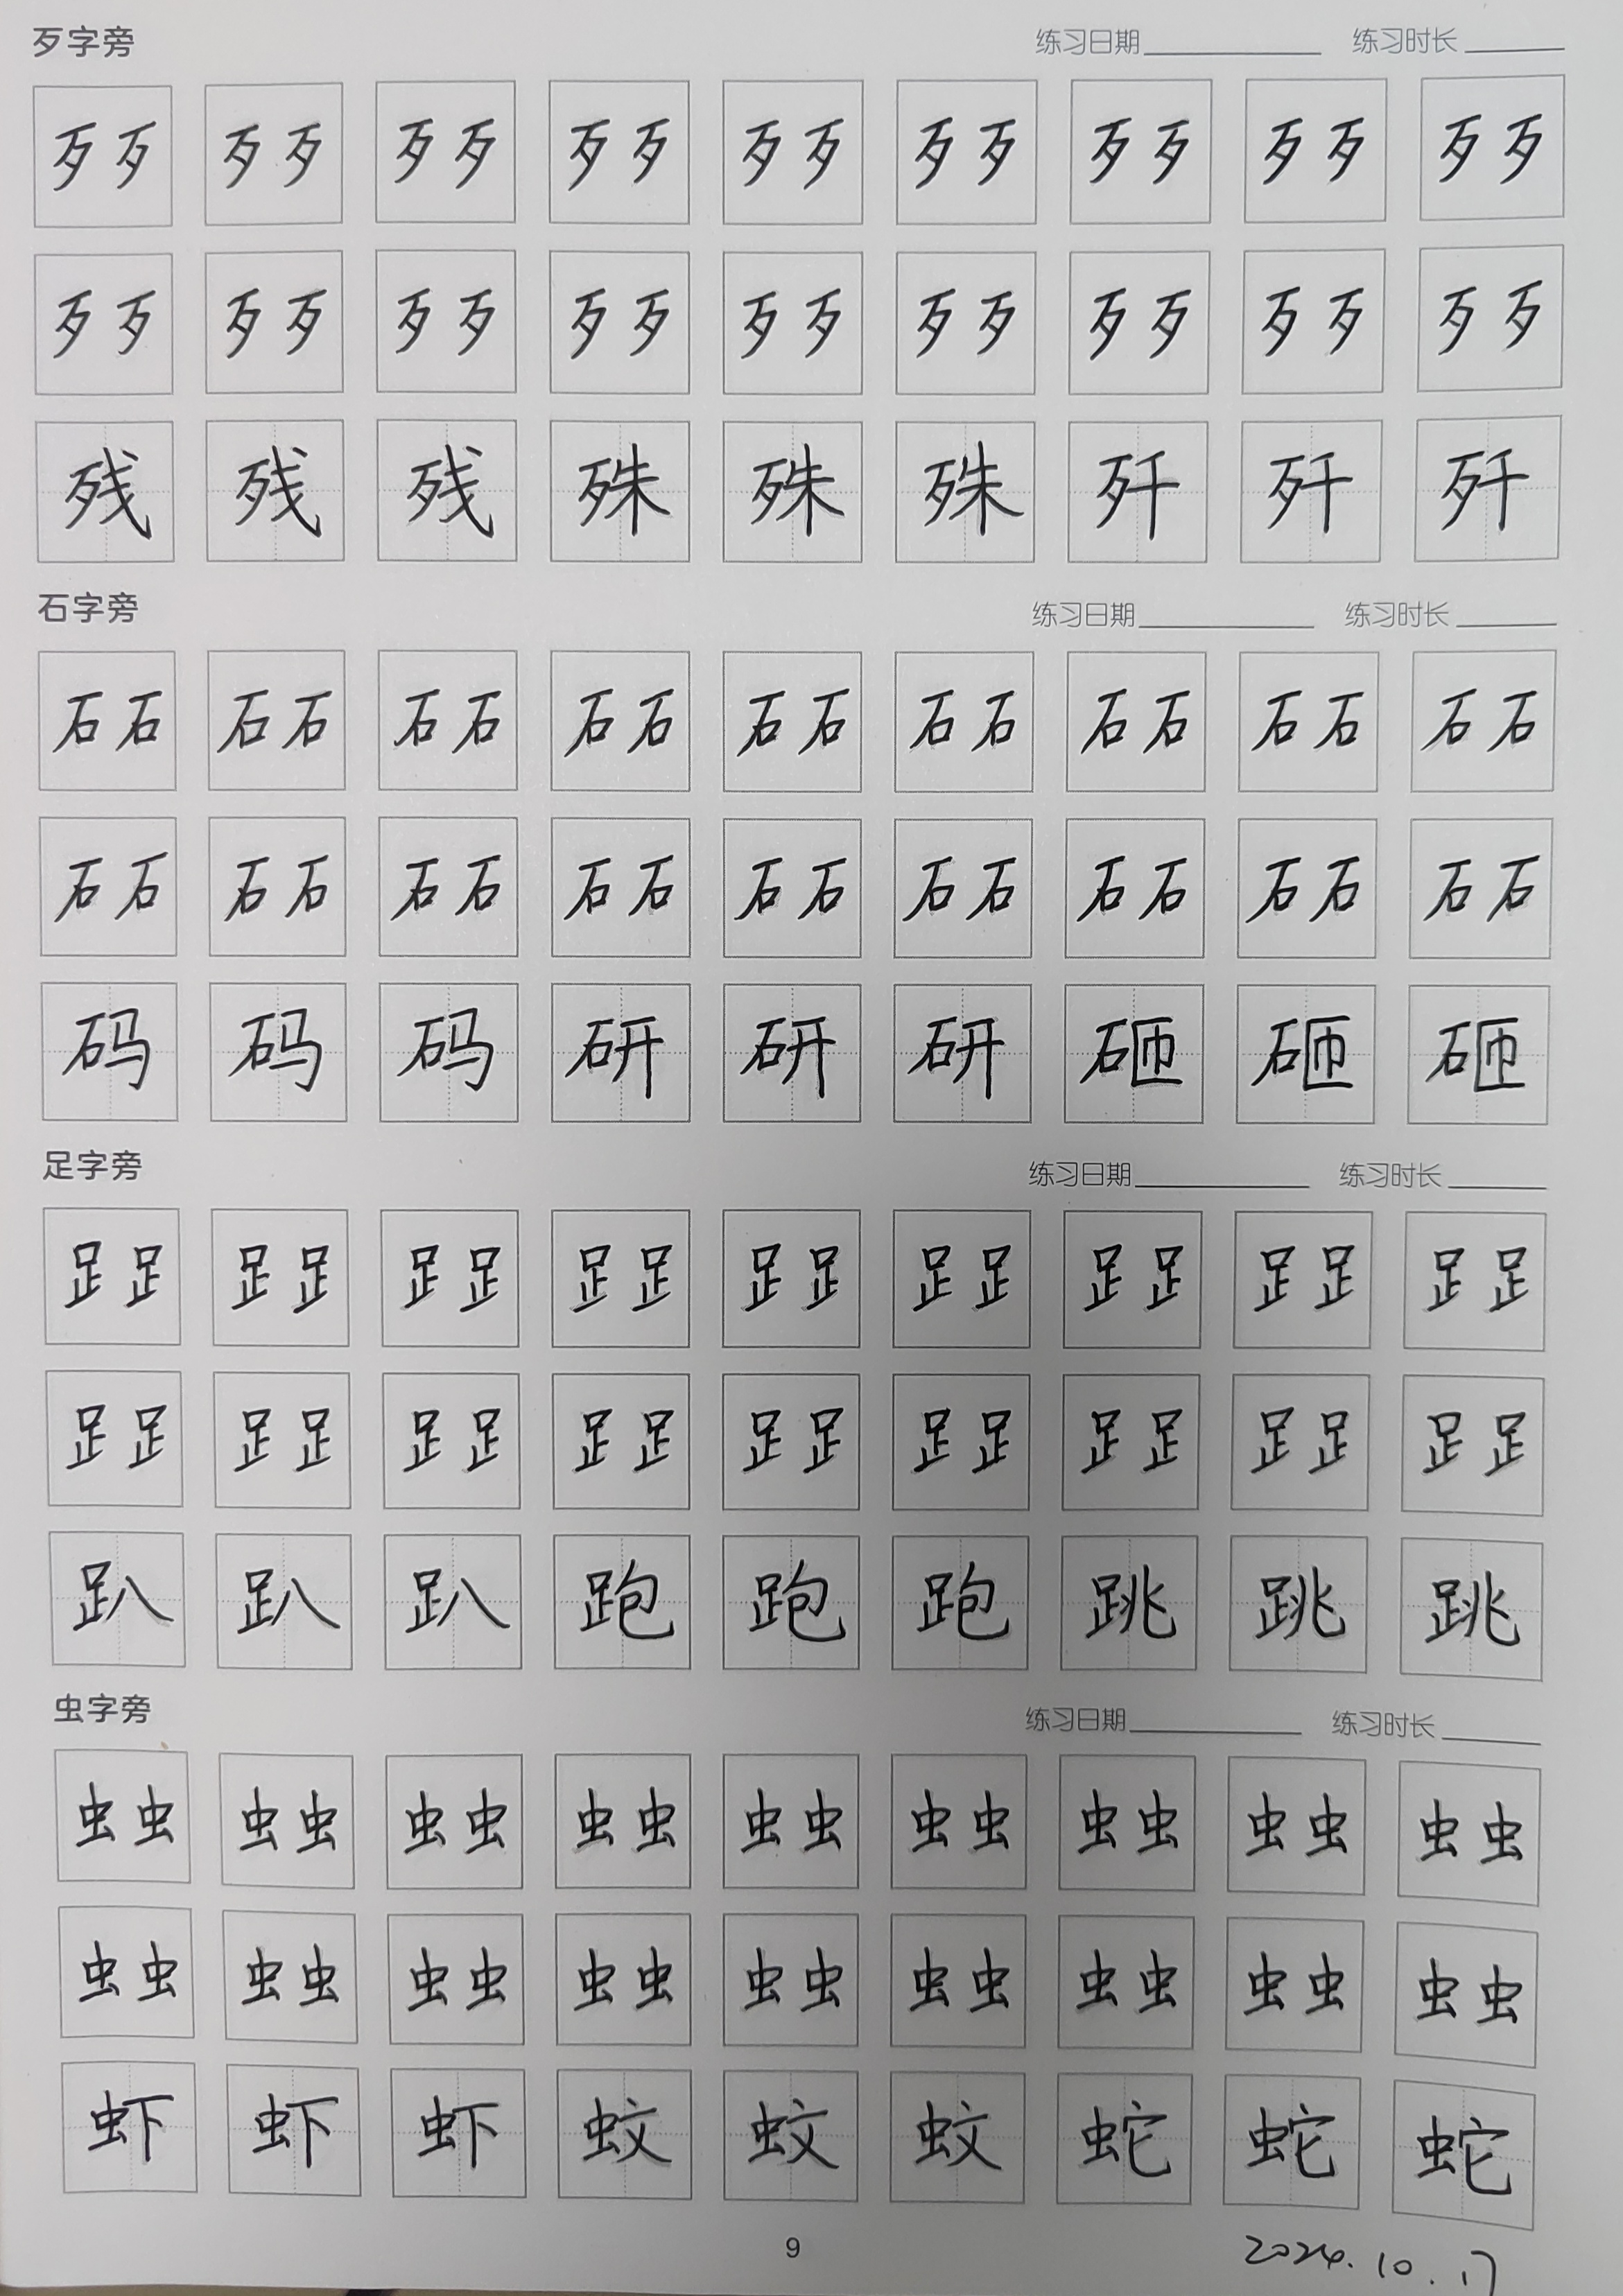 歹字旁 练习日期 练习时长
歹歹 歹歹 歹歹 歹歹 歹歹 歹歹 歹歹 歹歹 歹歹
歹歹 歹歹 歹歹 歹歹 歹歹 歹歹 歹歹 歹歹 歹歹
残 残 残 殊 殊 殊 歼 歼 歼
石字旁 练习日期 练习时长
石石 石石 石石 石石 石石 石石 石石 石石 石石
石石 石石 石石 石石 石石 石石 石石 石石 石石
码 码 码 研 研 研 砸 砸 砸
足字旁 练习日期 练习时长
𧾷𧾷 𧾷𧾷 𧾷𧾷 𧾷𧾷 𧾷𧾷 𧾷𧾷 𧾷𧾷 𧾷𧾷 𧾷𧾷
𧾷𧾷 𧾷𧾷 𧾷𧾷 𧾷𧾷 𧾷𧾷 𧾷𧾷 𧾷𧾷 𧾷𧾷 𧾷𧾷
趴 趴 趴 跑 跑 跑 跳 跳 跳
虫字旁 练习日期 练习时长
虫虫 虫虫 虫虫 虫虫 虫虫 虫虫 虫虫 虫虫 虫虫
虫虫 虫虫 虫虫 虫虫 虫虫 虫虫 虫虫 虫虫 虫虫
虾 虾 虾 蚊 蚊 蚊 蛇 蛇 蛇
9 2024.10.17